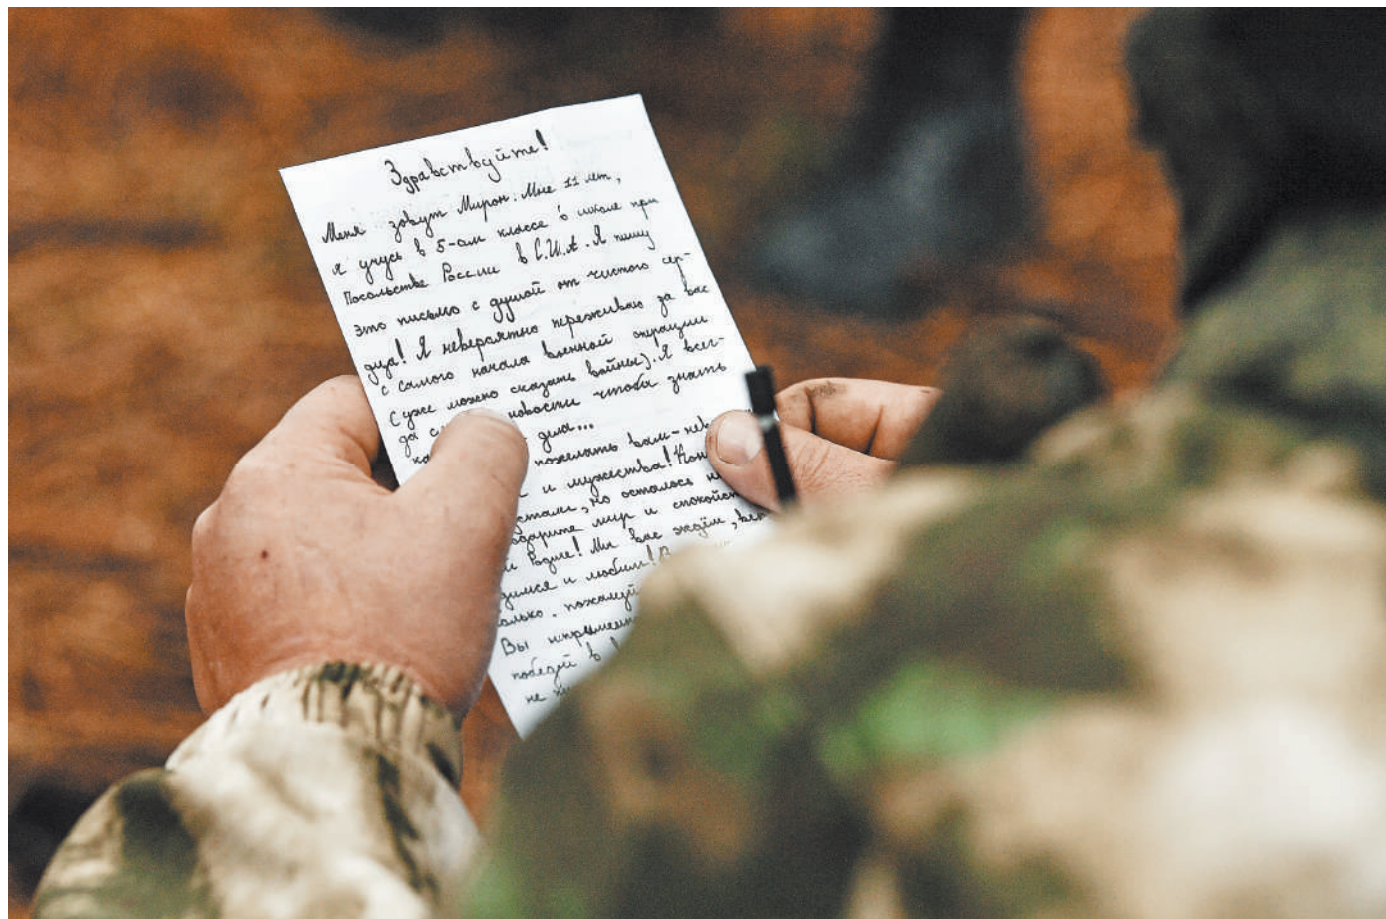 Здравствуйте!
Меня зовут Мирон. Мне 11 лет,
я учусь в 5-ом классе в школе при
Посольстве России в С.Ш.А. Я пишу
это письмо с душой от чистого сер-
дца! Я невероятно переживаю за вас
с самого начала военной операции
(уже можно сказать войны). Я всег-
да новости чтобы знать
ка дела...
пожелать вам-нев
и мужества! Кон
устали, но осталось н
одарите мир и спокойст
й Родине! Мы вас ждём, вер
димся и любим! В
олько. пожалуй
Вы
победй в
не